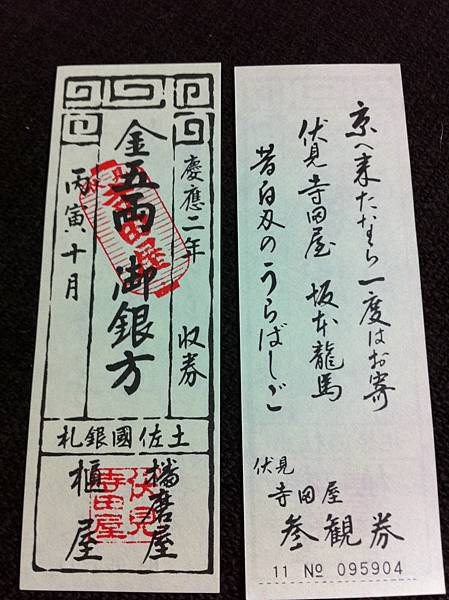 慶應二年
収券
金五両 御銀方
丙寅十月
土佐國銀札
播磨屋
櫃屋
伏見
寺田屋
京へ来たなら一度はお寄
伏見寺田屋 坂本龍馬
昔白刃のうらばしご
伏見
寺田屋
参観券
11 No 095904